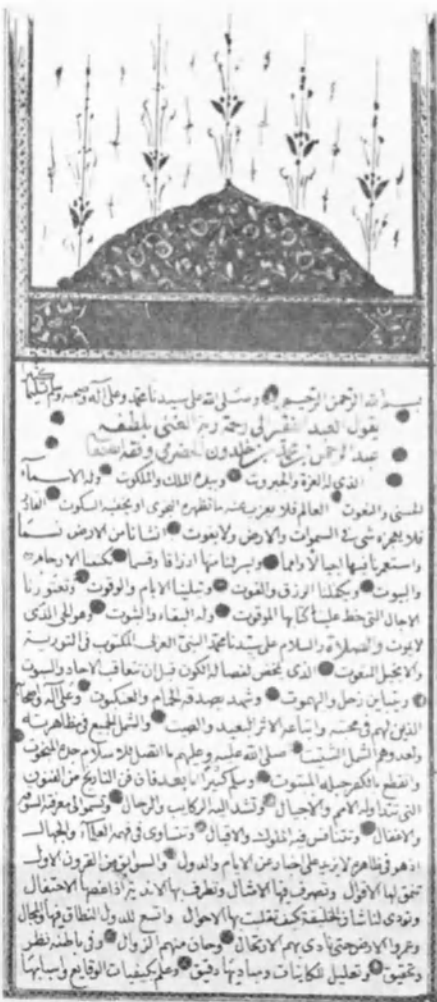 بسم الله الرحمن الرحيم وصلى الله على سيدنا محمد وعلى آله وصحبه وسلم تسليما
يقول العبد الفقير الى رحمة ربه الغني بلطفه
عبد الرحمن بن محمد بن خلدون الحضرمي وفقه الله
الذي له العزة والجبروت وبيده الملك والملكوت وله الاسماء
الحسنى والنعوت العالم فلا يعزب عنه ما تظهره النجوى او يخفيه السكوت القادر
فلا يعجزه شى في السموات والارض ولا يفوت انشانا من الارض نسما
واستعمرنا فيها اجيالا وامما ويسر لنا منها ارزاقا وقسما تكنفنا الارحام
والبيوت ويكفلنا الرزق والقوت وتبلينا الايام والوقوت وتعتورنا
الاجال التي خط علينا كتابها الموقوت وله البقاء والثبوت وهو الحي الذي
لا يموت والصلاة والسلام على سيدنا محمد النبي العربي المكتوب في التورية
والانجيل المنعوت الذي تمحض لفصاله الكون قبل ان تتعاقب الاحاد والسبوت
ويتباين زحل واليهموت وشهد بصدقه الحمام والعنكبوت وعلى آله واصحابه
الذين لهم في محبته واتباعه الاثر البعيد والصيت والشمل الجميع في مظاهرته
ولعدوهم الشمل الشتيت صلى الله عليه وعليهم ما اتصل للاسلام جده المبخوت
وانقطع بالكفر حبله المبتوت وسلم كثيرا اما بعد فان فن التاريخ من الفنون
التي تتداوله الامم والاجيال وتشد اليه الركايب والرحال وتسمو الى معرفته السوقة
والاغفال وتتنافس فيه الملوك والاقيال وتتساوى في فهمه العلماء والجهال
اذ هو في ظاهره لا يزيد على اخبار عن الايام والدول والسوابق من القرون الاول
تنمق لها الاقوال وتصرف فيها الامثال وتطرف بها الاندية اذا غصها الاحتفال
وتودي لنا شان الخليقة كيف تقلبت بها الاحوال واتسع للدول النطاق فيها والمجال
وعمروا الارض حتى نادى بهم الارتحال وحان منهم الزوال وفي باطنه نظر
وتحقيق وتعليل للكاينات ومباديها دقيق وعلم بكيفيات الوقايع واسبابها